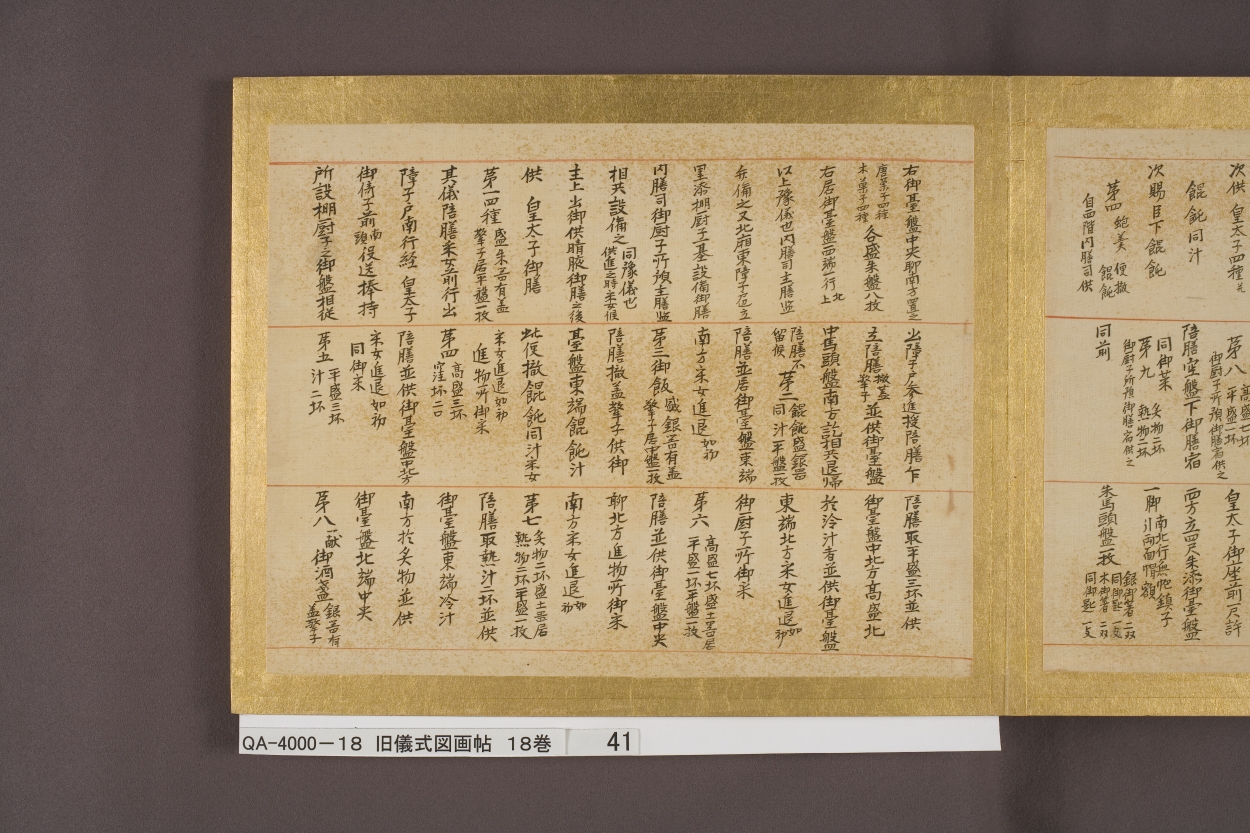 次供 皇太子四種
餛飩 同汁
次賜臣下餛飩
第四 鮑羹 便撤 餛飩
自西階内膳司供
第八 高盛七坏 平盛二坏
御厨子所預御膳宿供之
陪膳 盤下御膳宿
同御菜
第九 炙物二坏 熱物二坏
御厨子所預御膳宿供之
同前
皇太子御坐前尺許
西方立四尺朱漆御臺盤
一脚 南北行無帊鎮子 引両面帽額
朱馬頭盤一枚 銀御箸二双 同御匙一支 木御箸二双 同御匙一支
右御臺盤中央聊南方置之
唐菓子四種 木菓子四種 各盛朱盤八枚
右居御臺盤西端 行 北上
以上豫儀也内膳司主膳監
弁備之又北廂東障子 立
黒漆棚厨子 基設備御膳
内膳司御厨子所預主膳監
相共設備之 同豫儀也 供進之時采女候
主上出御供晴腋御膳之後
供 皇太子御膳
第一四種 盛朱 有蓋 擎子居平盤一枚
其儀陪膳采女前行出
障子戸南行経 皇太子
御倚子前 南頭 役送捧持
所設棚厨子之御盤相従
出障子戸参進授陪膳
立陪膳 撤蓋擎子 並供御臺盤
中馬頭盤南方訖相共退帰
陪膳不留候 第二 餛飩盛銀器 同汁平盤一枚
陪膳並居御臺盤東端
南方采女進退 如初
第三御飯 盛銀器有蓋 擎子居中盤一枚
陪膳撤蓋擎子供御
臺盤東端餛飩汁
此便撤餛飩同汁采女
采女進退如初
進物所御菜
第四 高盛三坏 窪坏二口
陪膳並供御臺盤中北方
采女進退如初
同御菜
第五 平盛三坏 汁二坏
陪膳取平盛三坏並供
御臺盤中北方高盛北
於冷汁者並供御臺盤
東端北方采女進退 如初
御厨子所御菜
第六 高盛七坏盛土器居 平盛一坏平盤一枚
陪膳並供御臺盤中央
聊北方進物所御菜
南方采女進退 如初
第七 炙物二坏盛土器居 熱物二坏平盤一枚
陪膳取熱汁二坏並供
御臺盤東端冷汁
南方於炙物並供
御臺盤北端中央
第八 一献 御酒盞 銀器有蓋擎子
QA-4000-18 旧儀式図画帖 18巻 41